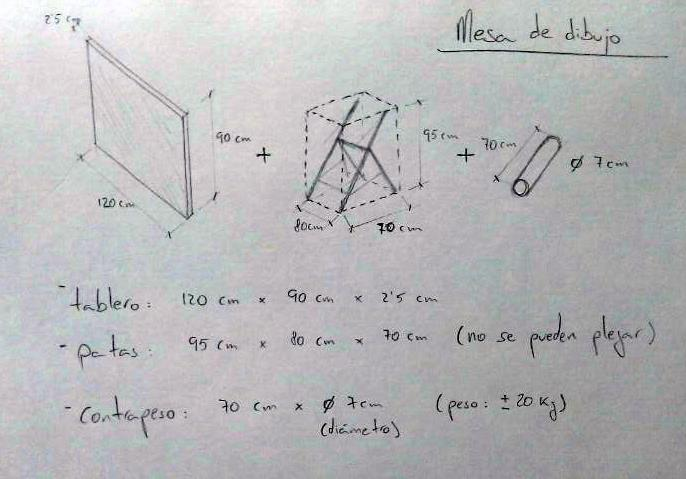 Mesa de dibujo
2'5 cm
90 cm
120 cm
+
95 cm
80cm
70 cm
+
70 cm
ø 7cm
- tablero: 120 cm x 90 cm x 2'5 cm
- patas: 95 cm x 80 cm x 70 cm (no se pueden plegar)
- Contrapeso: 70 cm x ø 7cm (peso: ± 20 Kg)
(diámetro)